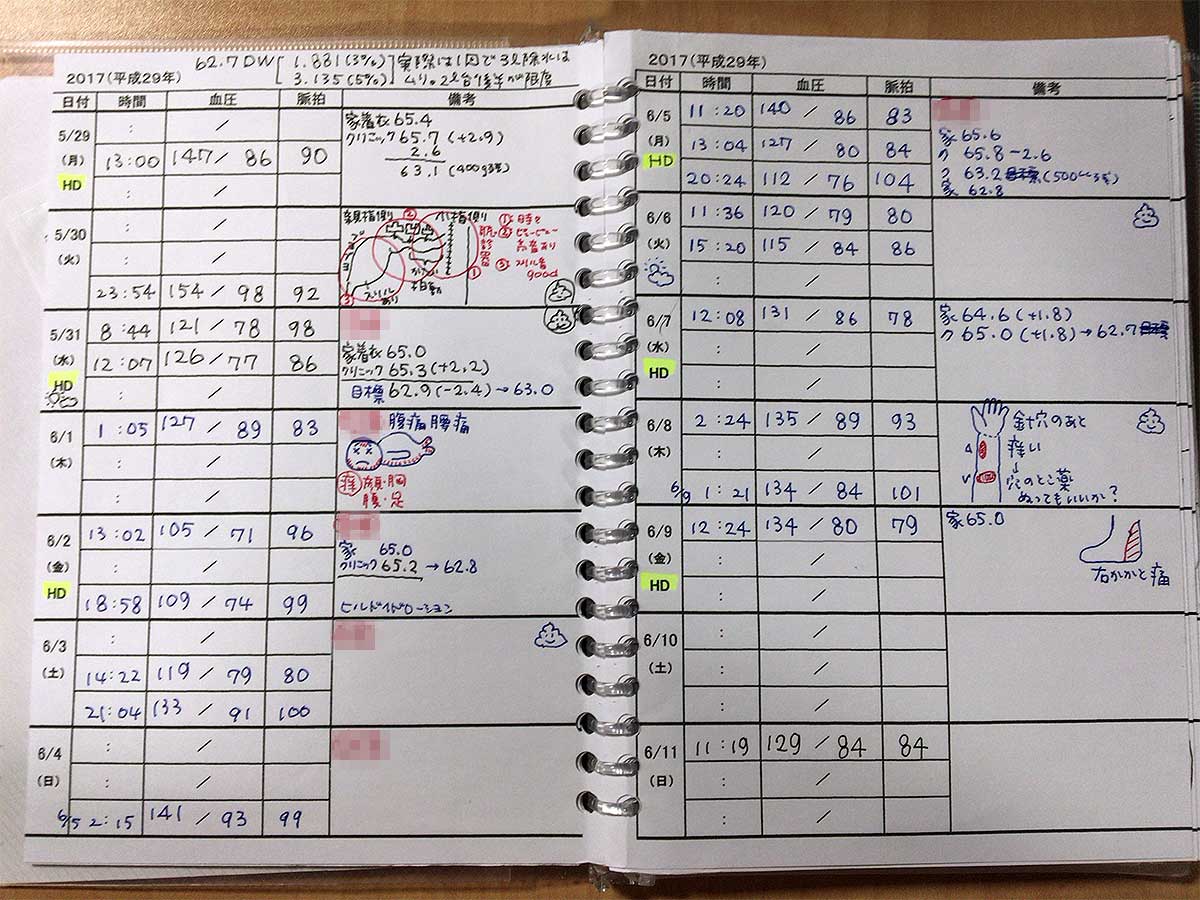 62.7DW [ 1.881(3%) ] 実際は1回で3ℓ除水は
3.135(5%) ムリ。2ℓ台後半が限度
2017(平成29年)
日付 時間 血圧 脈拍 備考
5/29 (月) HD
: /
13:00 147/86 90
: /
家着衣65.4
クリニック65.7(+2.9)
2.6
63.1(400g残)
5/30 (火)
: /
: /
23:54 154/98 92
親指側 ② 小指側
①:時々
聴診器
②ヒューヒュー
高音あり
③スリル音
good
①
③ スリルあり
5/31 (水) HD
8:44 121/78 98
12:07 126/77 86
: /
家着衣65.0
クリニック65.3(+2.2)
目標62.9(-2.4)→63.0
6/1 (木)
1:05 127/89 83
: /
: /
腹痛腰痛
痒 顔・胸
腹・足
6/2 (金) HD
13:02 105/71 96
: /
18:58 109/74 99
家 65.0
クリニック65.2→62.8
ヒルドイドローション
6/3 (土)
: /
14:22 119/79 80
21:04 133/91 100
6/4 (日)
: /
: /
6/5 2:15 141/93 99
2017(平成29年)
日付 時間 血圧 脈拍 備考
6/5 (月) HD
11:20 140/86 83
13:04 127/80 84
20:24 112/76 104
家65.6
ク 65.8-2.6
ク 63.2(500cc残)
家 62.8
6/6 (火)
11:36 120/79 80
15:20 115/84 86
: /
6/7 (水) HD
12:08 131/86 78
: /
: /
家64.6(+1.8)
ク65.0(+1.8)→62.7
6/8 (木)
2:24 135/89 93
: /
6/9 1:21 134/84 101
針穴のあと
A 痒い
↓
V 穴のとこ薬
ぬってもいいか?
6/9 (金) HD
12:24 134/80 79
: /
: /
家65.0
右かかと痛
6/10 (土)
: /
: /
: /
6/11 (日)
11:19 129/84 84
: /
: /